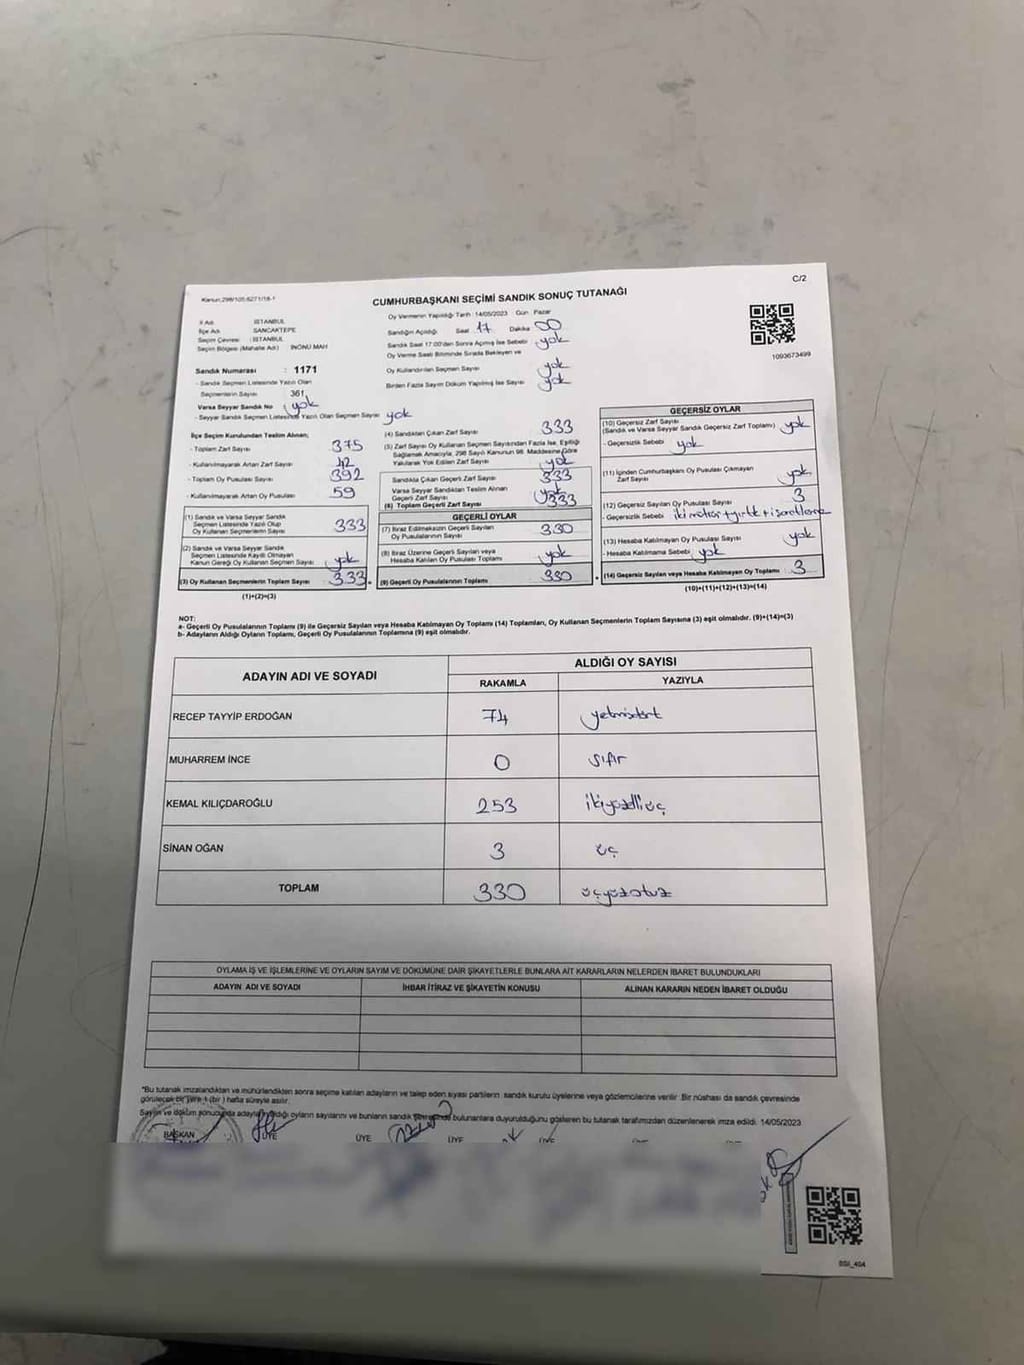 C/2
Kanun:298/105;6271/18-1
CUMHURBAŞKANI SEÇİMİ SANDIK SONUÇ TUTANAĞI
1093673499
İl Adı : İSTANBUL
İlçe Adı : SANCAKTEPE
Seçim Çevresi : İSTANBUL
Seçim Bölgesi (Mahalle Adı) : İNÖNÜ MAH
Sandık Numarası : 1171
- Sandık Seçmen Listesinde Yazılı Olan
Seçmenlerin Sayısı : 361
Varsa Seyyar Sandık No : yok
- Seyyar Sandık Seçmen Listesinde Yazılı Olan Seçmen Sayısı yok
Oy Vermenin Yapıldığı Tarih :14/05/2023 Gün Pazar
Sandığın Açıldığı Saat 17 Dakika 00
Sandık Saat 17:00'den Sonra Açılmış İse Sebebi yok
Oy Verme Saati Bitiminde Sırada Bekleyen ve
Oy Kullandırılan Seçmen Sayısı yok
Birden Fazla Sayım Döküm Yapılmış İse Sayısı yok
İlçe Seçim Kurulundan Teslim Alınan;
- Toplam Zarf Sayısı 375
- Kullanılmayarak Artan Zarf Sayısı 42
- Toplam Oy Pusulası Sayısı 392
- Kullanılmayarak Artan Oy Pusulası 59
(1) Sandık ve Varsa Seyyar Sandık
Seçmen Listesinde Yazılı Olup
Oy Kullanan Seçmenlerin Sayısı 333
(2) Sandık ve Varsa Seyyar Sandık
Seçmen Listesinde Kaydı Olmayan
Kanun Gereği Oy Kullanan Seçmen Sayısı yok
(3) Oy Kullanan Seçmenlerin Toplam Sayısı 333
(1)+(2)=(3)
(4) Sandıktan Çıkan Zarf Sayısı 333
(5) Zarf Sayısı Oy Kullanan Seçmen Sayısından Fazla İse, Eşitliği
Sağlamak Amacıyla, 298 Sayılı Kanunun 98. Maddesine Göre
Yakılarak Yok Edilen Zarf Sayısı yok
Sandıkta Çıkan Geçerli Zarf Sayısı 333
Varsa Seyyar Sandıktan Teslim Alınan
Geçerli Zarf Sayısı yok
(6) Toplam Geçerli Zarf Sayısı 333
GEÇERLİ OYLAR
(7) İtiraz Edilmeksizin Geçerli Sayılan
Oy Pusulasının Sayısı 330
(8) İtiraz Üzerine Geçerli Sayılan veya
Hesaba Katılan Oy Pusulası Toplamı yok
(9) Geçerli Oy Pusulalarının Toplamı 330
GEÇERSİZ OYLAR
(10) Geçersiz Zarf Sayısı
(Sandık ve Varsa Seyyar Sandık Geçersiz Zarf Toplamı) yok
- Geçersizlik Sebebi yok
(11) İçinden Cumhurbaşkanı Oy Pusulası Çıkmayan
Zarf Sayısı yok
(12) Geçersiz Sayılan Oy Pusulası Sayısı 3
- Geçersizlik Sebebi iki mühür + yırtık + işaretleme
(13) Hesaba Katılmayan Oy Pusulası Sayısı yok
- Hesaba Katılmama Sebebi yok
(14) Geçersiz Sayılan veya Hesaba Katılmayan Oy Toplamı 3
(10)+(11)+(12)+(13)=(14)
NOT:
a- Geçerli Oy Pusulalarının Toplamı (9) ile Geçersiz Sayılan veya Hesaba Katılmayan Oy Toplamı (14) Toplamları, Oy Kullanan Seçmenlerin Toplam Sayısına (3) eşit olmalıdır. (9)+(14)=(3)
b- Adayların Aldığı Oyların Toplamı, Geçerli Oy Pusulalarının Toplamına (9) eşit olmalıdır.
ADAYIN ADI VE SOYADI ALDIĞI OY SAYISI
RAKAMLA YAZIYLA
RECEP TAYYİP ERDOĞAN 74 yetmişdört
MUHARREM İNCE 0 sıfır
KEMAL KILIÇDAROĞLU 253 ikiyüzelliüç
SİNAN OĞAN 3 üç
TOPLAM 330 üçyüzotuz
OYLAMA İŞ VE İŞLEMLERİNE VE OYLARIN SAYIM VE DÖKÜMÜNE DAİR ŞİKAYETLERLE BUNLARA AİT KARARLARIN NELERDEN İBARET BULUNDUKLARI
ADAYIN ADI VE SOYADI İHBAR İTİRAZ VE ŞİKAYETİN KONUSU ALINAN KARARIN NEDEN İBARET OLDUĞU
*Bu tutanak imzalandıktan ve mühürlendikten sonra seçime katılan adayların ve talep eden siyasi partilerin sandık kurulu üyelerine veya gözlemcilerine verilir. Bir nüshası da sandık çevresinde
görülecek bir yere 1 (bir) hafta süreyle asılır.
Sayım ve döküm sonucunda adayların aldığı oyların sayılarını ve bunların sandık çevresinde bulunanlara duyurulduğunu gösteren bu tutanak tarafımızdan düzenlenerek imza edildi. 14/05/2023
BAŞKAN ÜYE ÜYE ÜYE ÜYE
BSI_404